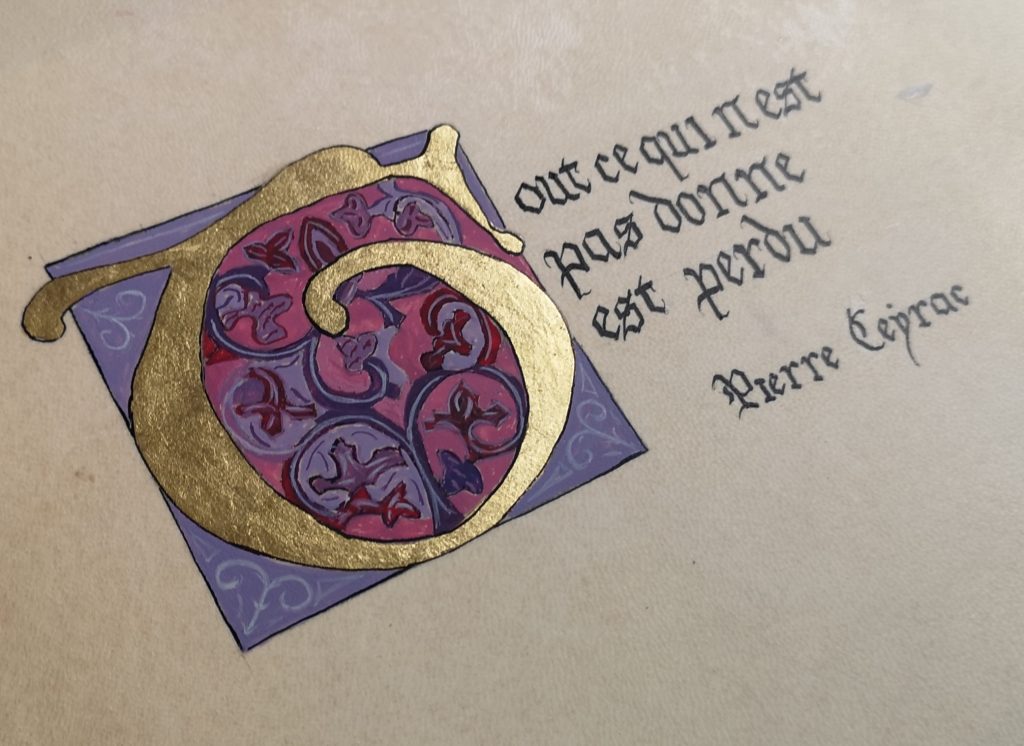 Tout ce qui n est
pas donne
est perdu
Pierre Ceyrac